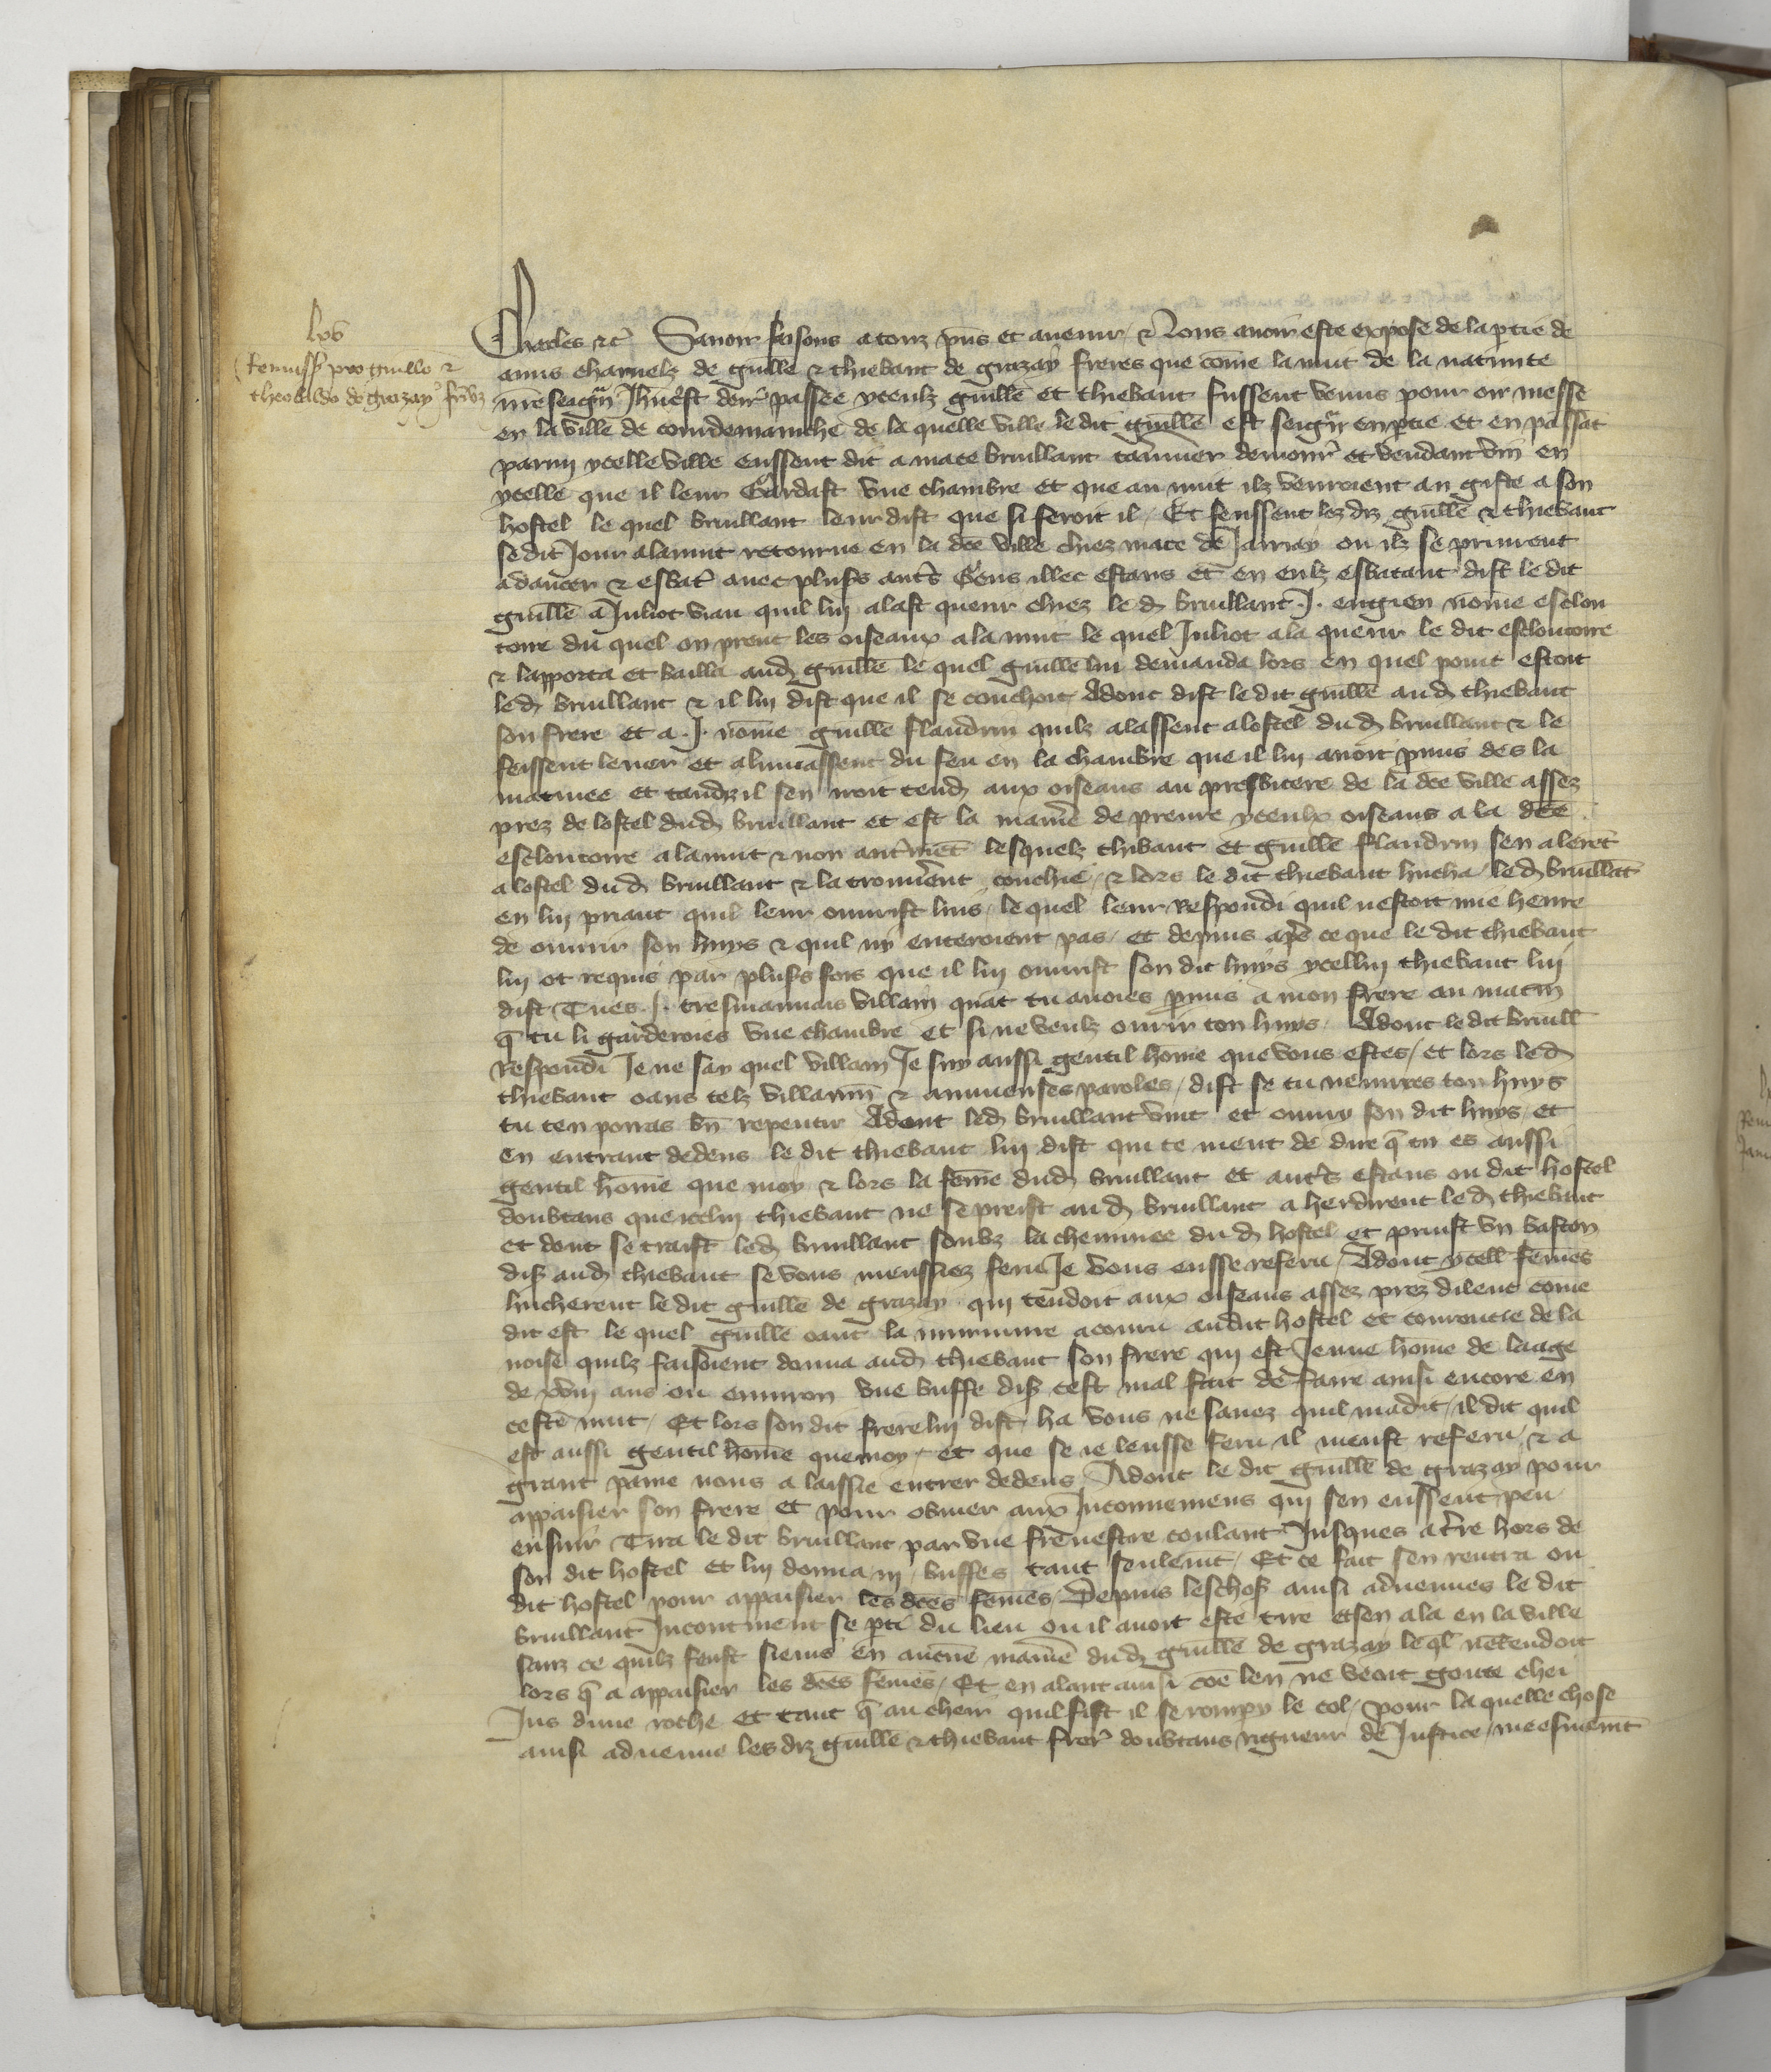 lxv
Remissio pro guillō &
theobaldo de grazay fr̄ibz
Charles &c̄ Sauoir faisons a touz p̄ns et auenir / & Nous auoir este expose de la ptie de
amis charnelz de guille & thiebaut de grazay freres que cōme la nuit de la natiuite
n̄re seign̄r Jhūcrist der̄ passee yceulz guille et thiebaut fussent venus pour oir messe
en la ville de courdemanche de la quelle ville le dit guille est seign̄r en ptie et en passāt
parmi ycelle ville eussent dit a mace bruillant tauernier demour̄ et vendant vin en
ycelle que il leur Gardast vne chambre et que au nuit ilz venroient au giste a son
hostel le quel bruillant leur dist que si feroit il / Et feussent lez diz guille & thiebaut
se dit Jour a la nuit retourne en la dc̄e ville chiez mace de Jarray ou ilz se prinrent
a dancer & esbatr̄ auec plus̄s aut̄s Gens illec estans et en eulz esbatant dist le dit
guille a Juliot viau quil lui alast querir chiez le d̄ bruillant .J. engien nōme esclou
toire du quel on prent les oiseaux a la nuit le quel Juliot ala querir le dit escloutoire
& lapporta et bailla aud̄ guille le quel guille lui demanda lors en quel point estoit
led̄ bruillant & il lui dist que il se couchoit Adonc dist le dit guille aud̄ thiebaut
son frere et a .J. nōme guille flandrin quilz alassent a lostel dud̄ bruillant & le
feissent leuer et alumassent du feu en la chambre que il lui auoit pmis des la
matinee et tandiz il sen iroit tend̄ aux oiseaus au presbitere de la dc̄e ville assez
prez de lostel dud̄ bruillant et est la manie̅ de prenre yceulx oiseaus a la dc̄e
escloutoire a la nuit & non autrem̄t lesquelz thibaut et guille flandrin sen alerēt
a lostel dud̄ bruillant & la trouuerent couchie / & lors le dit thiebaut hucha led̄ bruillāt
en lui priant quil leur ouurist luis / le quel leur Respondi quil nestoit mie heure
de ouurir son huys & quil ny enteroient pas / et depuis aps̄ ce que le dit thiebaut
lui ot requis par plus̄s fois que il lui ouurist son dit huys ycellui thiebaut lui
dist Tu es .J. tresmauuais villain quāt tu auoies pmis a mon frere au matin
q̄ tu li garderoies vne chambre et si ne veulz ourir ton huys / Adonc le dit bruill̄
Respondi Je ne say quel villain Je suy aussi gentil hōme que vous estes / et lors led̄
thiebaut oans telz villanm̄ & annuenses paroles / dist se tu nenures ton huys
tu ten porras bn̄ repentir Adont led̄ bruillant vint et ouury son dit huys / et
en entrant dedens le dit thiebaut lui dist qui te ment de dire q̄ tu es aussi
gentil hōme que moy & lors la fēme dud̄ bruillant et aut̄s estans ou dit hostel
doubtans que icelui thiebaut ne se preist aud̄ bruillant aherdirent led̄ thiebaut
et dont se traist led̄ bruillant soubz la cheminee dud̄ hostel et prinst vn baston
dis̄ aud̄ thiebaut se vous meussiez feru Je vous eusse referu / Adont ycell̄ fēmes
hucherent le dit guille de grazay qui tendoit aux oiseaus assez prez dilenc cōme
dit est le quel guille oant la murmure acouru au dit hostel et couroucie de la
noise quilz faisoient donna aud̄ thiebaut son frere qui est Jenne hōme de laage
de xviij ans ou enuiron vne buffe dis̄ cest mal fait de faire ainsi encore en
ceste nuit / Et lors son dit frere lui dist ha vous ne sauez quil ma dit / il dit quil
est aussi gentil hōme que moy / et que se ie leusse feru il meust referu / & a
grant paine nous a laissie entrer dedens Adont le dit guille de grazay pour
appaisier son frere et pour obuier aux Inconueniens qui sen eussent peu
ensuir Tira le dit bruillant par vne frenestre coulant Jusques a t̄re hors de
son dit hostel et lui donna iij buffes tant seulem̄t / Et ce fait sen rentra ou
dit hostel pour appaisier les dc̄es fēmes / Depuis leschos̄ ainsi aduenues le dit
bruillant Incontinent se pti du lieu ou il auoit este tire et sen ala en la ville
sanz ce quilz feust sieuis en aucūe manie̅ dud̄ guille de grazay leql̄ nētendoit
lors q̄ a appaisier les dc̄es fēmes / Et en alant ainsi cōe len ne veoit goute chei
Jus dune roche et tant q̄ au cheir quil fist il se rompy le col / pour la quelle chose
ainsi aduenue les diz guille & thiebaut frer̄ doubtans rigueur de Justice / meesmem̄t